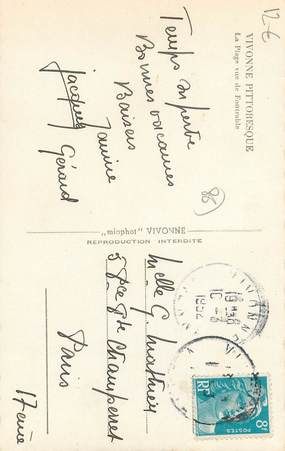 12€
VIVONNE PITTORESQUE
La Plage vue de Fontrable
Temps superbe
Bonnes vacances
Baisers
Janine
Jacques Gérard
86
"miophot" VIVONNE
REPRODUCTION INTERDITE
VIVONNE
1954
Melle G. Mathieu
5 Pce Pte Champerret
Paris
17ème
8F
RF
POSTES